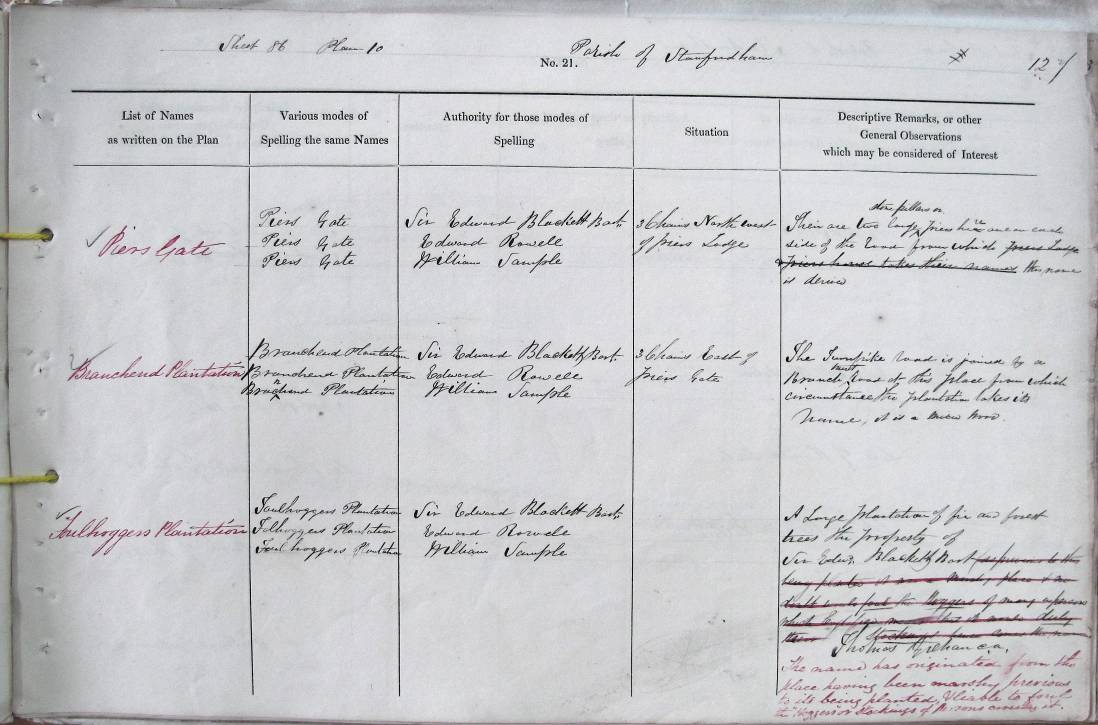 Sheet 86 Plan 10 Parish of Stamfordham
No. 21. 127
List of Names
as written on the Plan
Various modes of
Spelling the same Names
Authority for those modes of
Spelling
Situation
Descriptive Remarks, or other
General Observations
which may be considered of Interest
Piers Gate
Piers Gate
Piers Gate
Piers Gate
Sir Edward Blackett Bart.
Edward Rowell
William Sample
3 Chains North west
of piers Lodge
stone pillars or
Their are two large piers here one on each
side of the road from which piers Lodge
& piers house takes their names this name
is derived
Branchend Plantation
Branchend Plantation
Branchend Plantation
Branchend Plantation
Sir Edward Blackett Bart.
Edward Rowell
William Sample
3 Chains East of
piers Gate
The Turnpike road is joined by a
Branch road at this place from which
circumstance the plantation takes its
name, it is a mixed wood.
Foulhoggers Plantation
Foulhoggers Plantation
Fulhoggers Plantation
Foul hoggers Plantation
Sir Edward Blackett Bart.
Edward Rowell
William Sample
A Large Plantation of fir and forest
trees the property of
Sir Edwd. Blackett Bart as previous to its
being planted it was a marshy place & no
doubt would foul the Hoggers of many a person
Thomas
The name has originated from the
place having been marshy previous
to its being planted, & liable to foul
the Hoggers or Stockings of Persons crossing it.